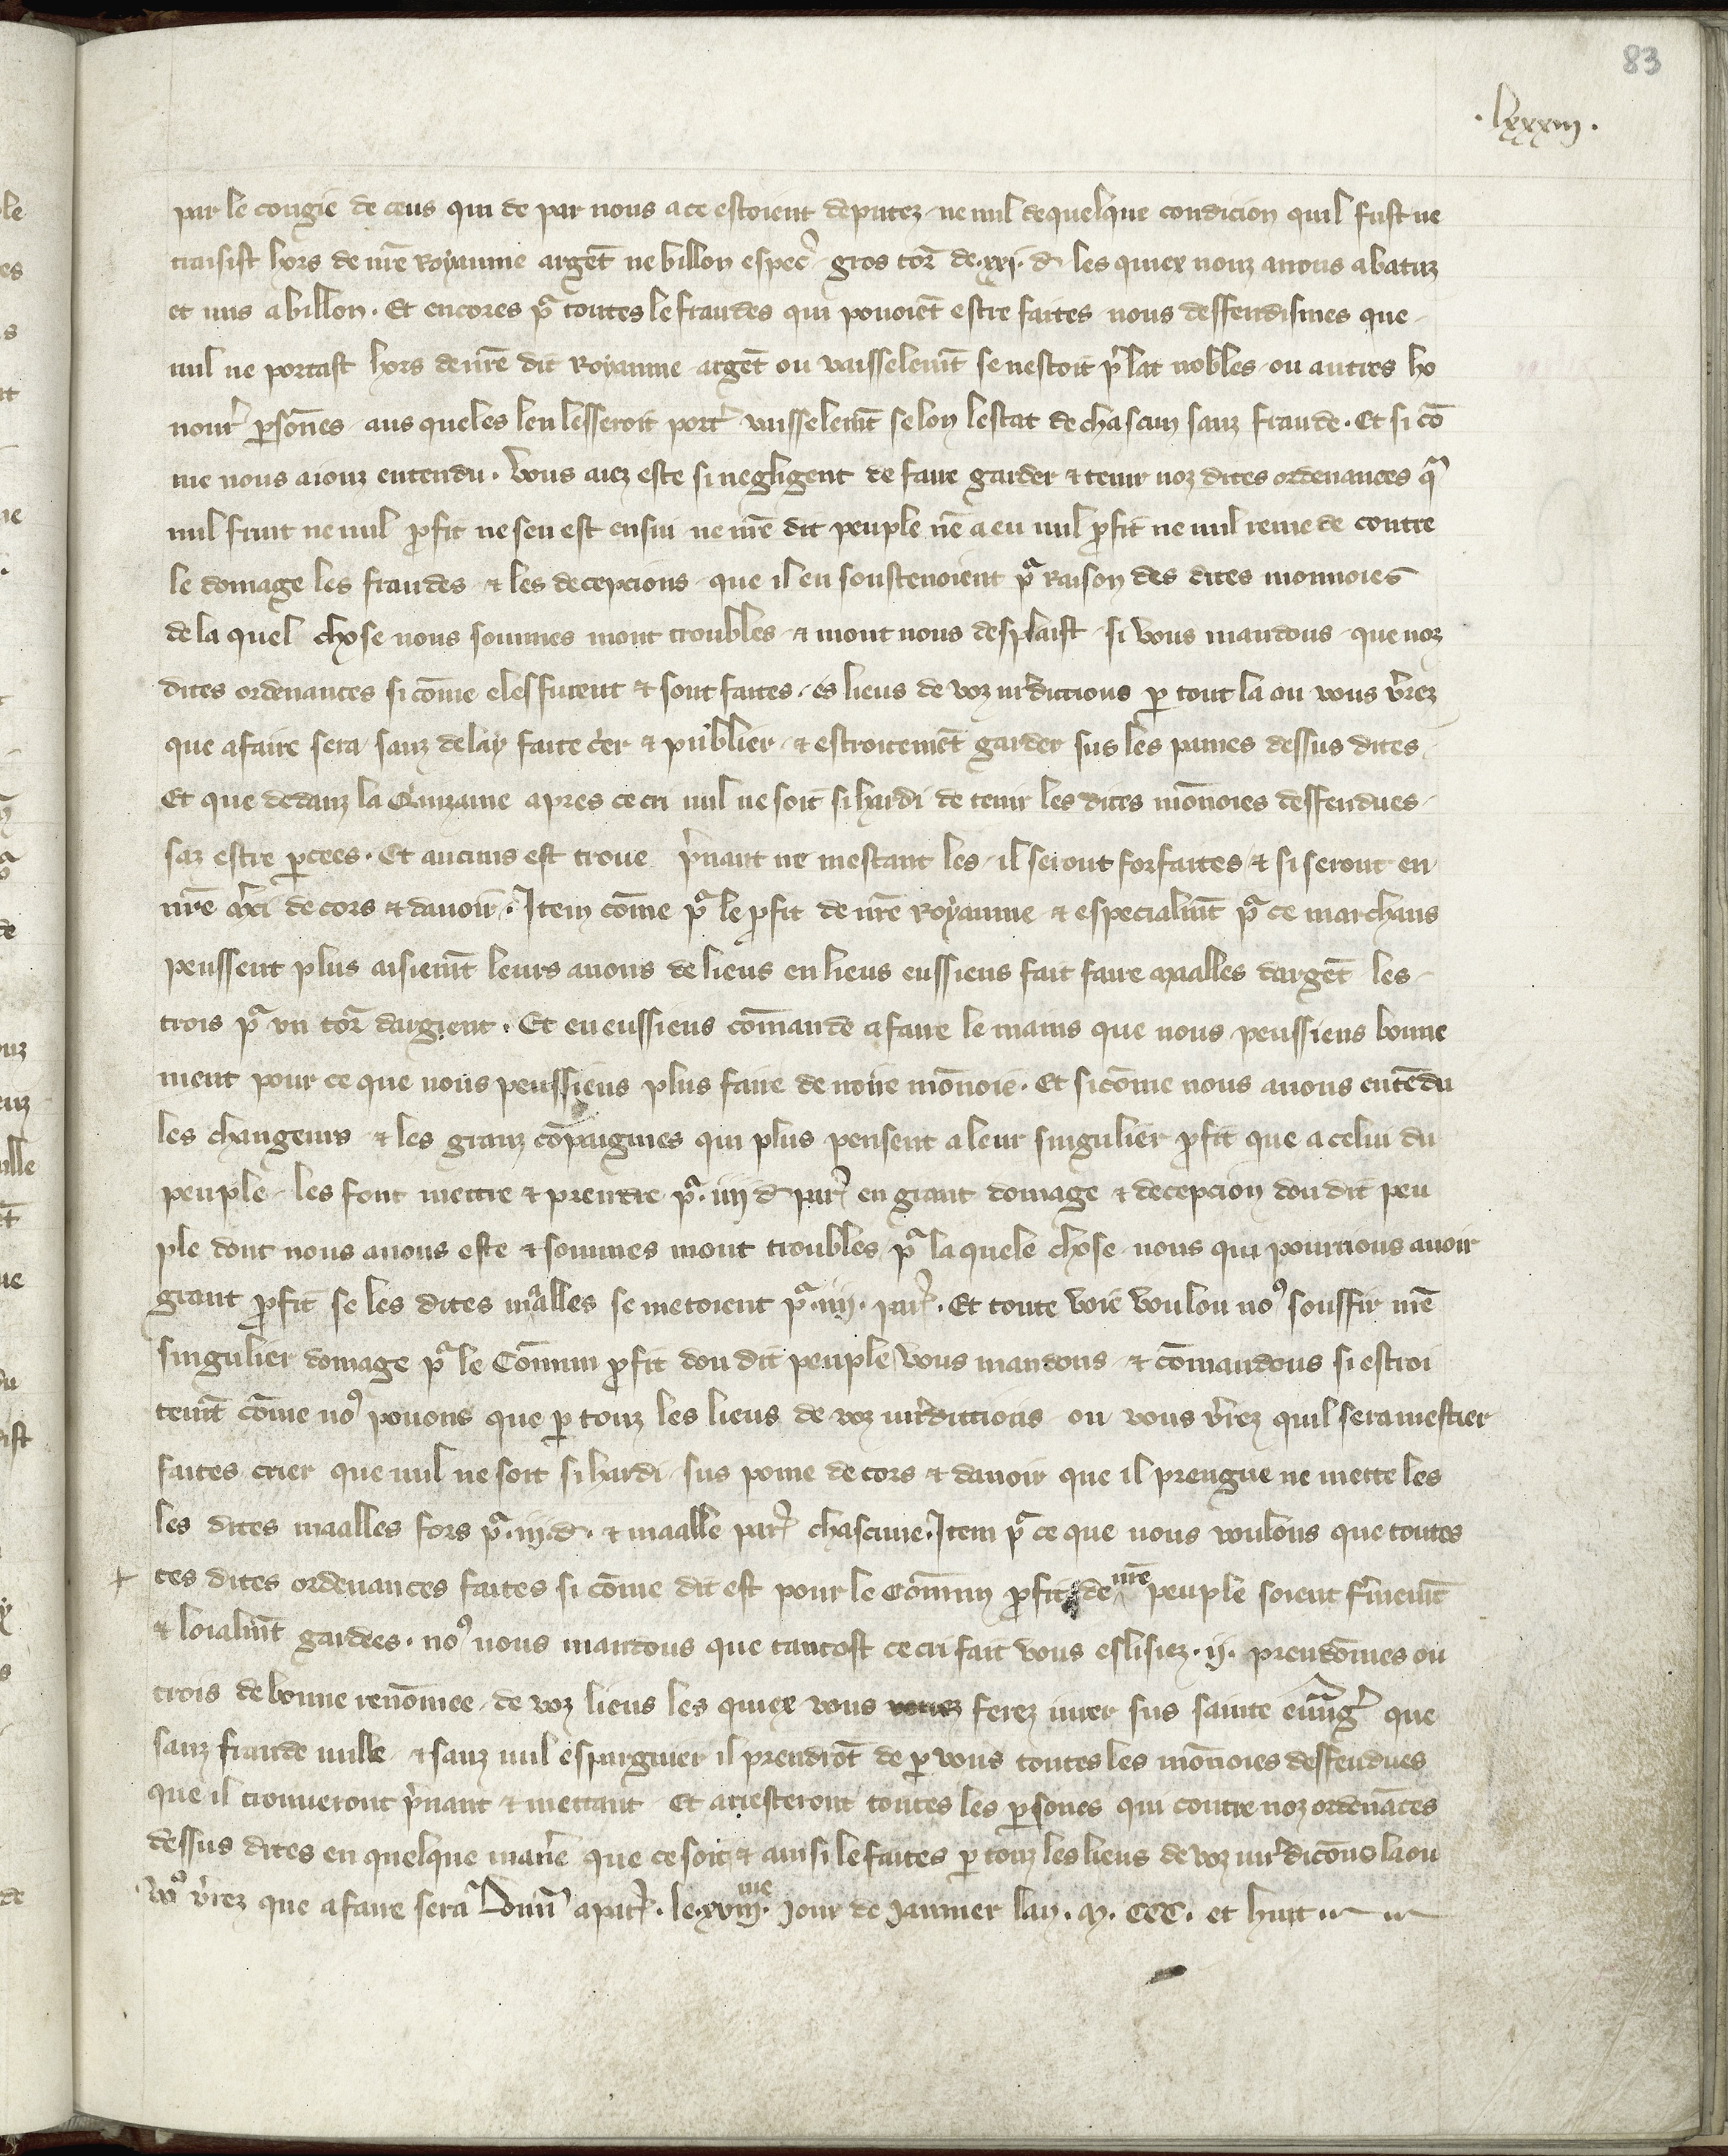 83
.lxxxiii.
par le congie de ceus qui de par nous a ce estoient deputez ne nul de quelque condicion quil fust ne
traisist hors de nr̄e Royaume argēt ne billon espec̉ gros torˉ de .xxi. d les quiex nouz auons abatuz
et mis a billon . Et encores pͣ toutes le fraudes qui pouoiēt estre faites nous deffendismes que
nul ne portast hors de nr̄e dit Royaume argēt ou vaisselemēt se nestoit p̉lat nobles ou autres ho
nour̉ ꝑsōnes aus queles len lesseroit port̉ vaisselemēt selon lestat de chascun sanz fraude . Et si cō
me nous aionz entendu . Vous aiez este si negligent de faire garder & tenir noz dites ordenances qͣ
nul fruit ne nul ꝓfit ne sen est ensiu ne nr̄e dit peuple nē a eu nul ꝓfit ne nul remede contre
le domage les fraudes & les decepcions que il en soustenoient pͣ Raison des dites monnoies
de la quel chose nous sommes mout troubles & mout nous desplaist si vous mandons que noz
dites ordenances si cōme eles furent & sont faites es lieus de voz iur̉dictions ꝑ tout la ou vous v̉rez
que a faire sera sanz delay faite c̉er & publier & estroitemēt garder sus les paines dessus dites
Et que dedanz la Quinzaine apres ce cri nul ne soit si hardi de tenir les dites mōnoies deffendues
saz estre ꝑcees . Et aucuns est troue p̉nant ne mestant les il seront forfaites & si seront en
nr̄e m̉ci de cors & dauoir . Item cōme pͣ le ꝓfit de nr̄e Royaume & especialmēt pͣ ce marchans
peussent plus aisiemēt leurs auons de lieus en lieus eussiens fait faire maalles dargēt les
trois pͣ vn torˉ dargient . Et en eussiens cōmande a faire le mains que nous peussiens bonne
ment pour ce que nous peussiens plus faire de noire mōnoie . Et si cōme nous auons entēdu
les changeurs & les granz cōpaignies qui plus pensent a leur singulier ꝓfit que a celui du
peuple les font mettre & prendre pͣ .iiij d par̉ en grant domage & decepcion dou dit peu
ple dont nous auons este & sommes mout troubles pͣ la quele chose nous qui pourrions auoir
grant ꝓfit se les dites maalles se metoient pͣ .iiij. par̉ . Et toute voie voulon noꝰ souffrir nr̄e
singulier domage pͣ le Cōmun ꝓfit dou dit peuple vous mandons & cōmandons si estroi
temēt cōme noꝰ pouons que ꝑ touz les lieus de voz iur̉dictions ou vous v̉rez quil sera mestier
faites crier que nul ne soit si hardi sus poine de cors & dauoir que il prengne ne mette les
les dites maalles fors pͣ .iij. d . & maalle par̉ chascune . Item pͣ ce que nous voulons que toutes
ces dites ordenances faites si cōme dit est pour le Cōmun ꝓfit de nr̄e peuple soient f̉memēt
& loialmēt gardees . noꝰ vous mandons que tantost ce cri fait vous eslisiez .ij. preudōmes ou
trois de bonne renōmee de voz lieus les quiex vous ferez iurer sus sainte euuāg̉ que
sanz fraude nulle & sanz nul espargnier il prendrōt de ꝑ vous toutes les mōnoies deffendues
que il trouueront p̉nant & mettant Et arresteront toutes les ꝑsones qui contre noz ordenāces
dessus dites en quelque man̉e que ce soit & ainsi le faites ꝑ touz les lieus de voz iur̉dicōns la ou
voꝰ v̉rez que a faire sera Donn̄ a par̉ . le .xviij.me Jour de Januier lan . M . CCC . et huit